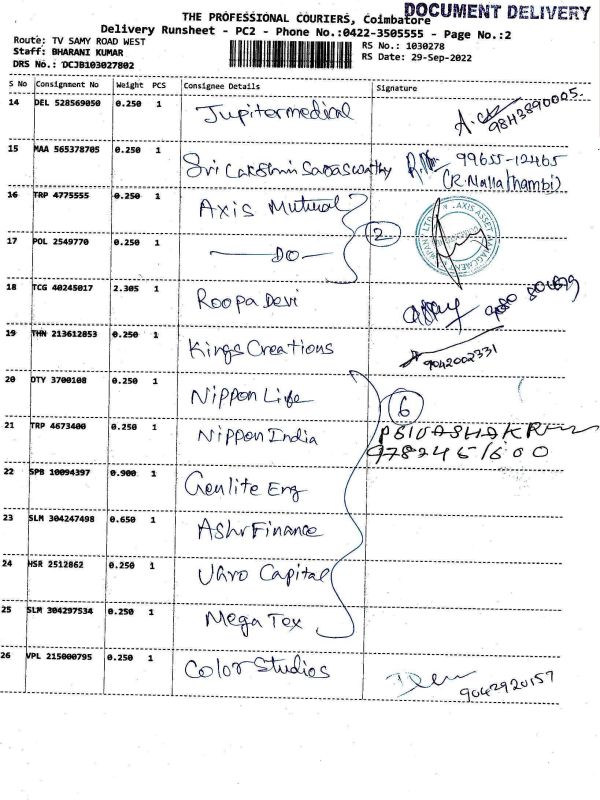 DOCUMENT DELIVERY
THE PROFESSIONAL COURIERS, Coimbatore
Delivery Runsheet - PC2 - Phone No.:0422-3505555 - Page No.:2
Route: TV SAMY ROAD WEST
RS No.: 1030278
Staff: BHARANI KUMAR
RS Date: 29-Sep-2022
DRS No.: DCJB103027802
S No Consignment No Weight PCS Consignee Details Signature
14 DEL 528569050 0.250 1 Jupitermedical 9843890005.
15 MAA 565378705 0.250 1 Sri Lakshmi Saraswathy 99655-12465
(R.Nallathambi)
16 TRP 4775555 0.250 1 Axis Mutual
2
17 POL 2549770 0.250 1 DO
18 TCG 40245017 2.305 1 Roopa Devi
19 THN 213612853 0.250 1 Kings Creations 9042002331
20 DTY 3700108 0.250 1 Nippon Life 6
21 TRP 4673400 0.250 1 Nippon India
9782451600
22 SPB 10094397 0.900 1 Genlite Eng
23 SLM 304247498 0.650 1 Ashv Finance
24 HSR 2512862 0.250 1 Ugro Capital
25 SLM 304297534 0.250 1 Mega Tex
26 VPL 215000795 0.250 1 Color Studios 9042920157